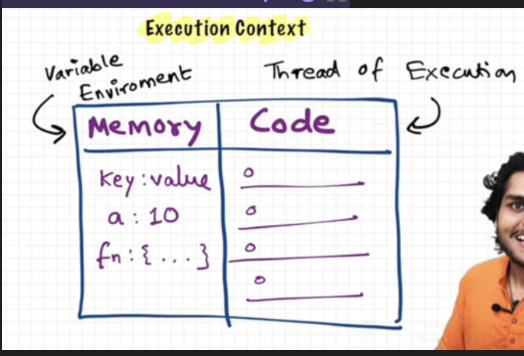 Execution Context
Variable
Enviroment
Thread of Execution
Memory
Code
key : value
a : 10
fn : { ... }